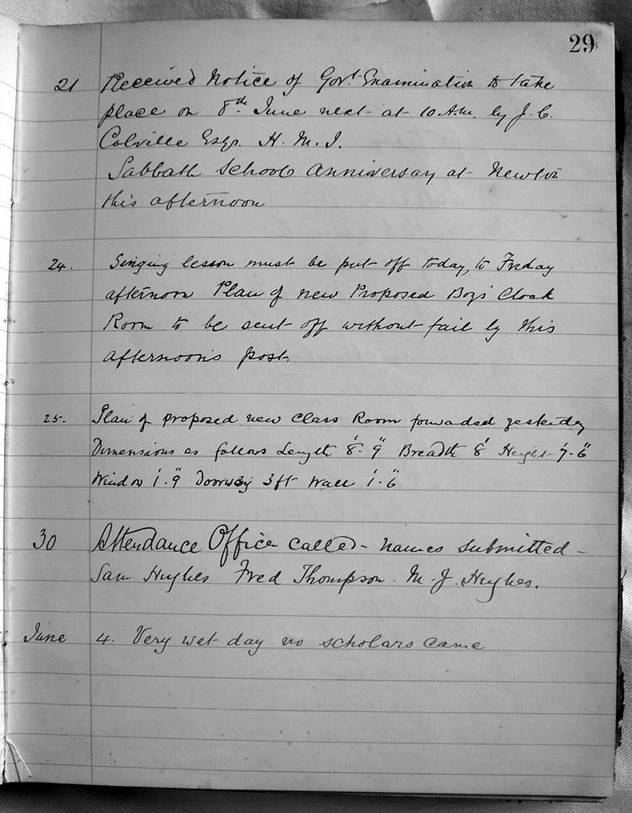 29
21 Received Notice of Govt. Examination to take
place on 8th June next at 10 A.M. by J. C.
Colville Esqr. H. M. I.
Sabbath School Anniversary at Newton
this afternoon
24. Singing lesson must be put off today, to Friday
afternoon Plan of new Proposed Boys' Cloak
Room to be sent off without fail by this
afternoon's post.
25. Plan of proposed new Class Room forwarded yesterday
Dimensions as follows Length 8'. 9" Breadth 8' Height 7'. 6"
Window 1'. 9" Doorway 3 ft Wall 1'. 6"
30 Attendance Officer called - names submitted -
Sam Hughes Fred Thompson. M. J. Hughes.
June 4. Very wet day no scholars came